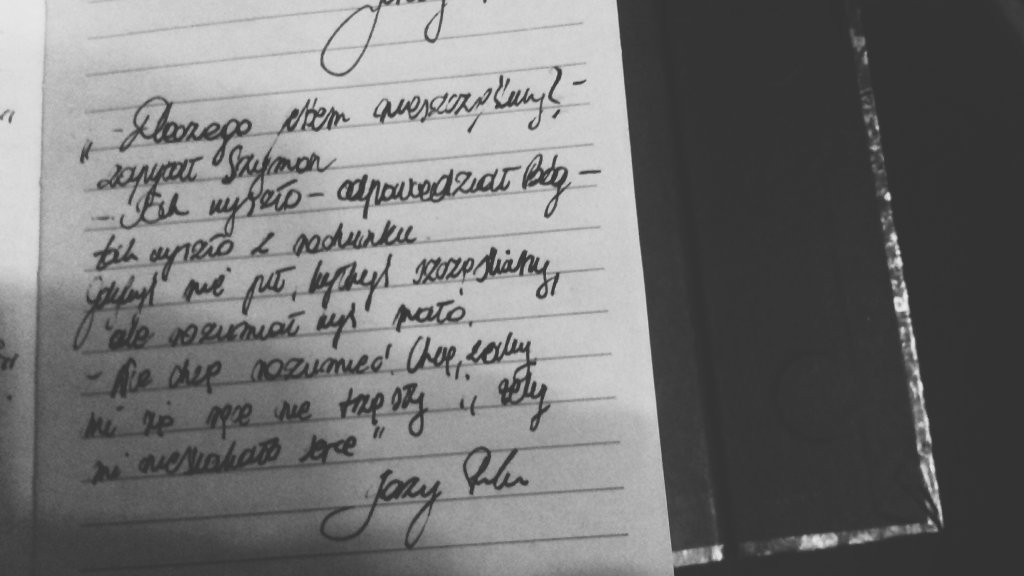 „- Dlaczego jestem nieszczęśliwy? -
zapytał Szymon
- Tak wyszło - odpowiedział Bóg -
tak wyszło z rachunku.
Gdybyś nie pił, byłbyś szczęśliwy,
ale rozumiałbyś mało.
- Nie chcę rozumieć! Chcę, żeby
mi się ręce nie trzęsły i żeby
mi nie skakało serce"
Jerzy Pilch